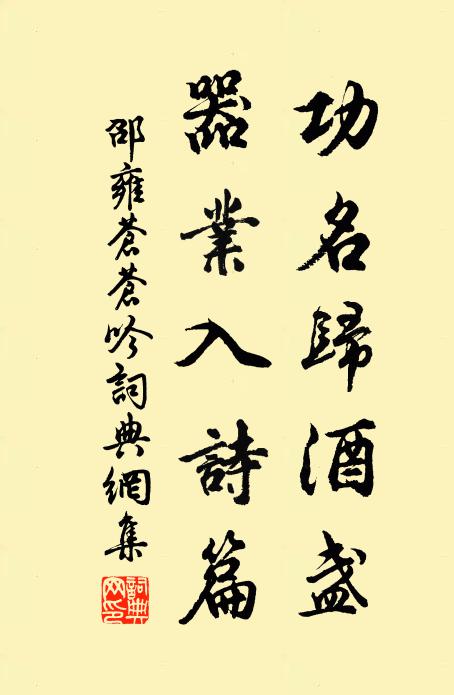 功名歸酒盞
器業入詩篇
邵雍蒼蒼吟詞典網集
詞典网印